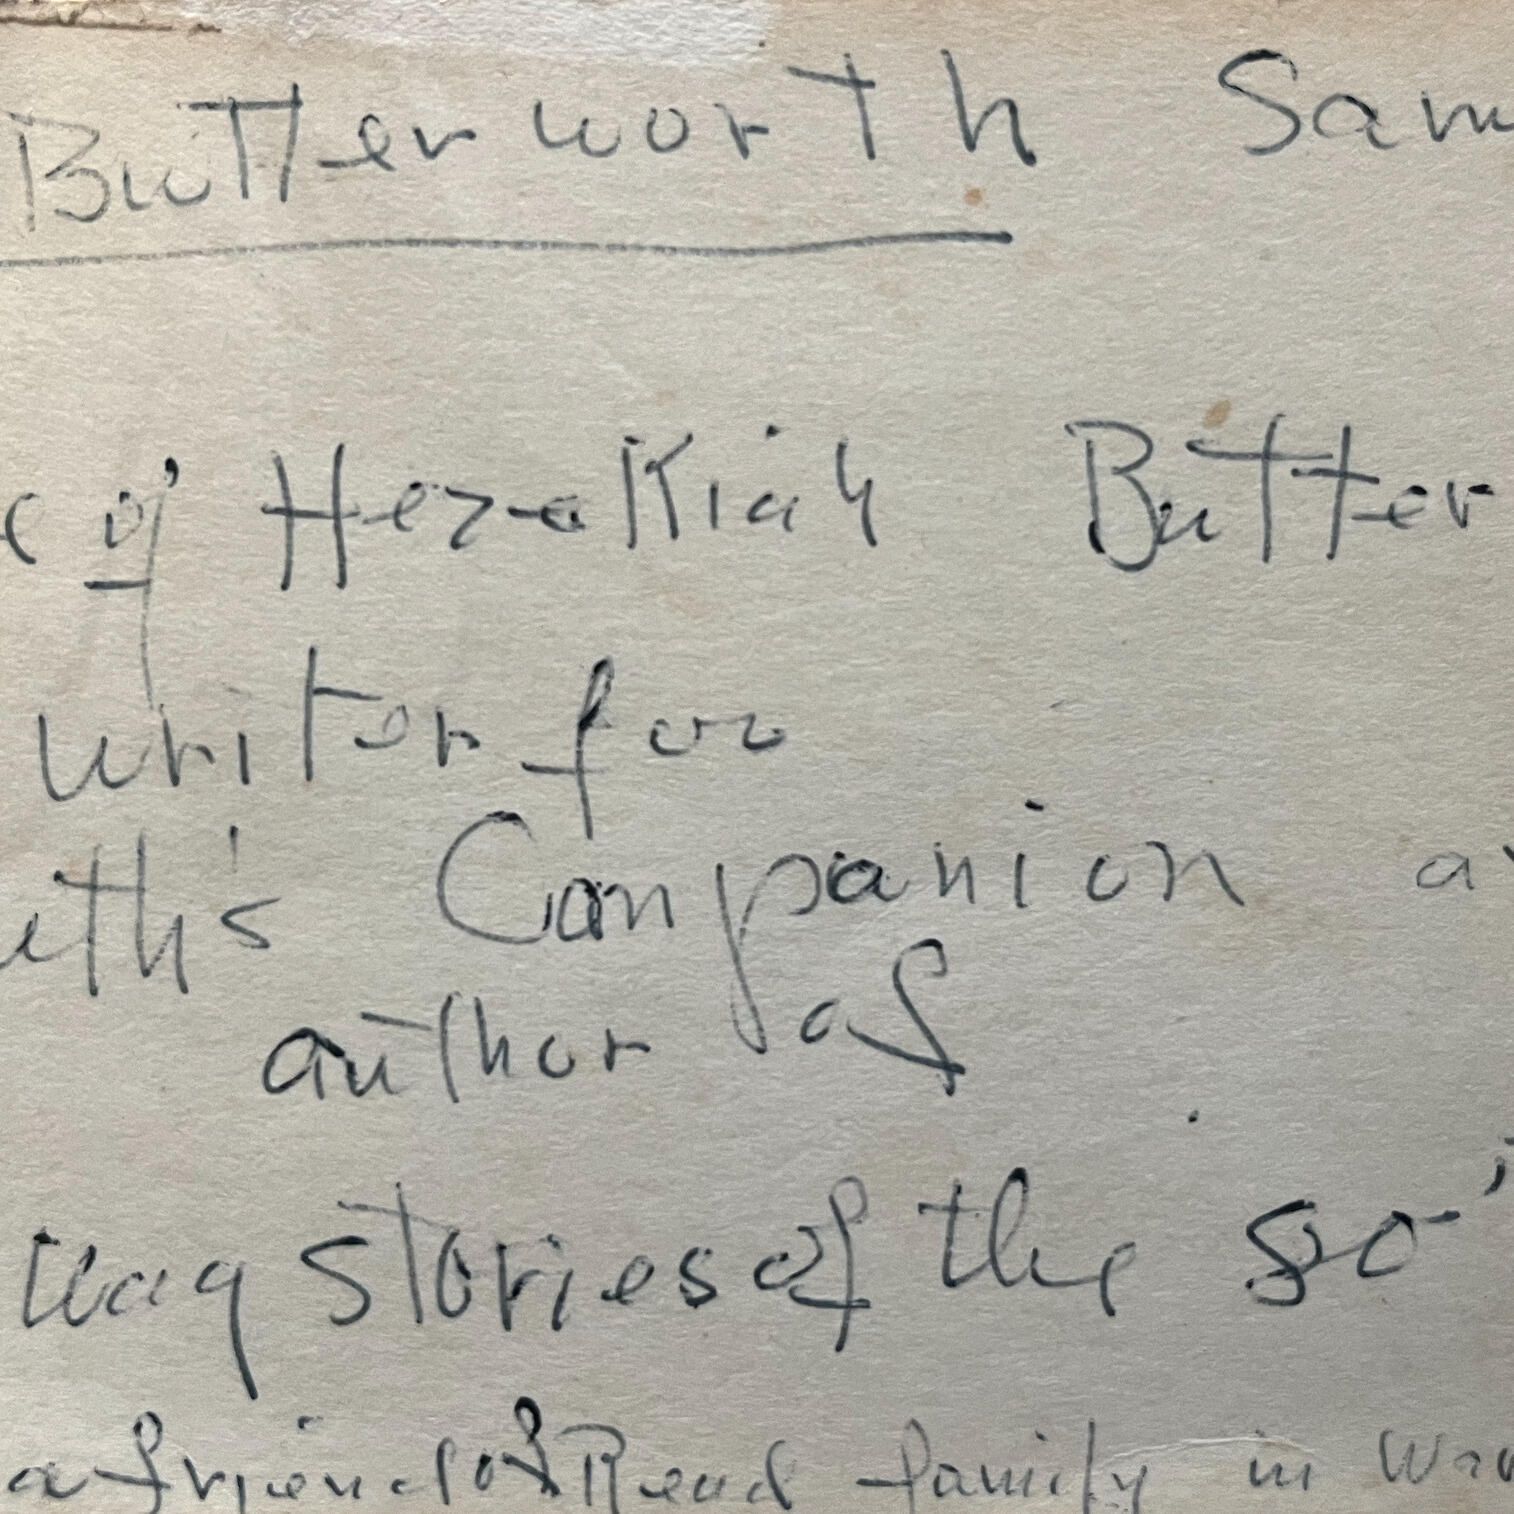 Butterworth Sam
e of Hezekiah Butter
writer for
uth's Companion a
author of
stories of the 50'
a friend of Read family in War